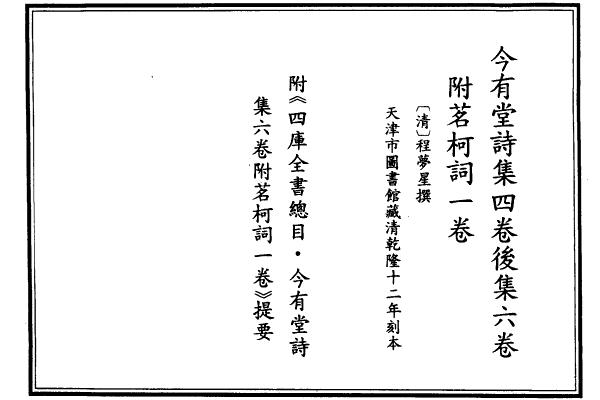 今有堂詩集四卷後集六卷
附茗柯詞一卷
〔清〕程夢星撰
天津市圖書館藏清乾隆十二年刻本
附《四庫全書總目·今有堂詩
集六卷附茗柯詞一卷》提要